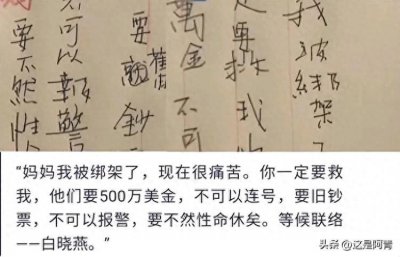 我被綁架
定要救我
萬金不可
要舊鈔
不可以報警
要不然性
“妈妈我被绑架了，现在很痛苦。你一定要救
我，他们要500万美金，不可以连号，要旧钞
票，不可以报警，要不然性命休矣。等候联络
——白晓燕。”
头条 @这是阿胥